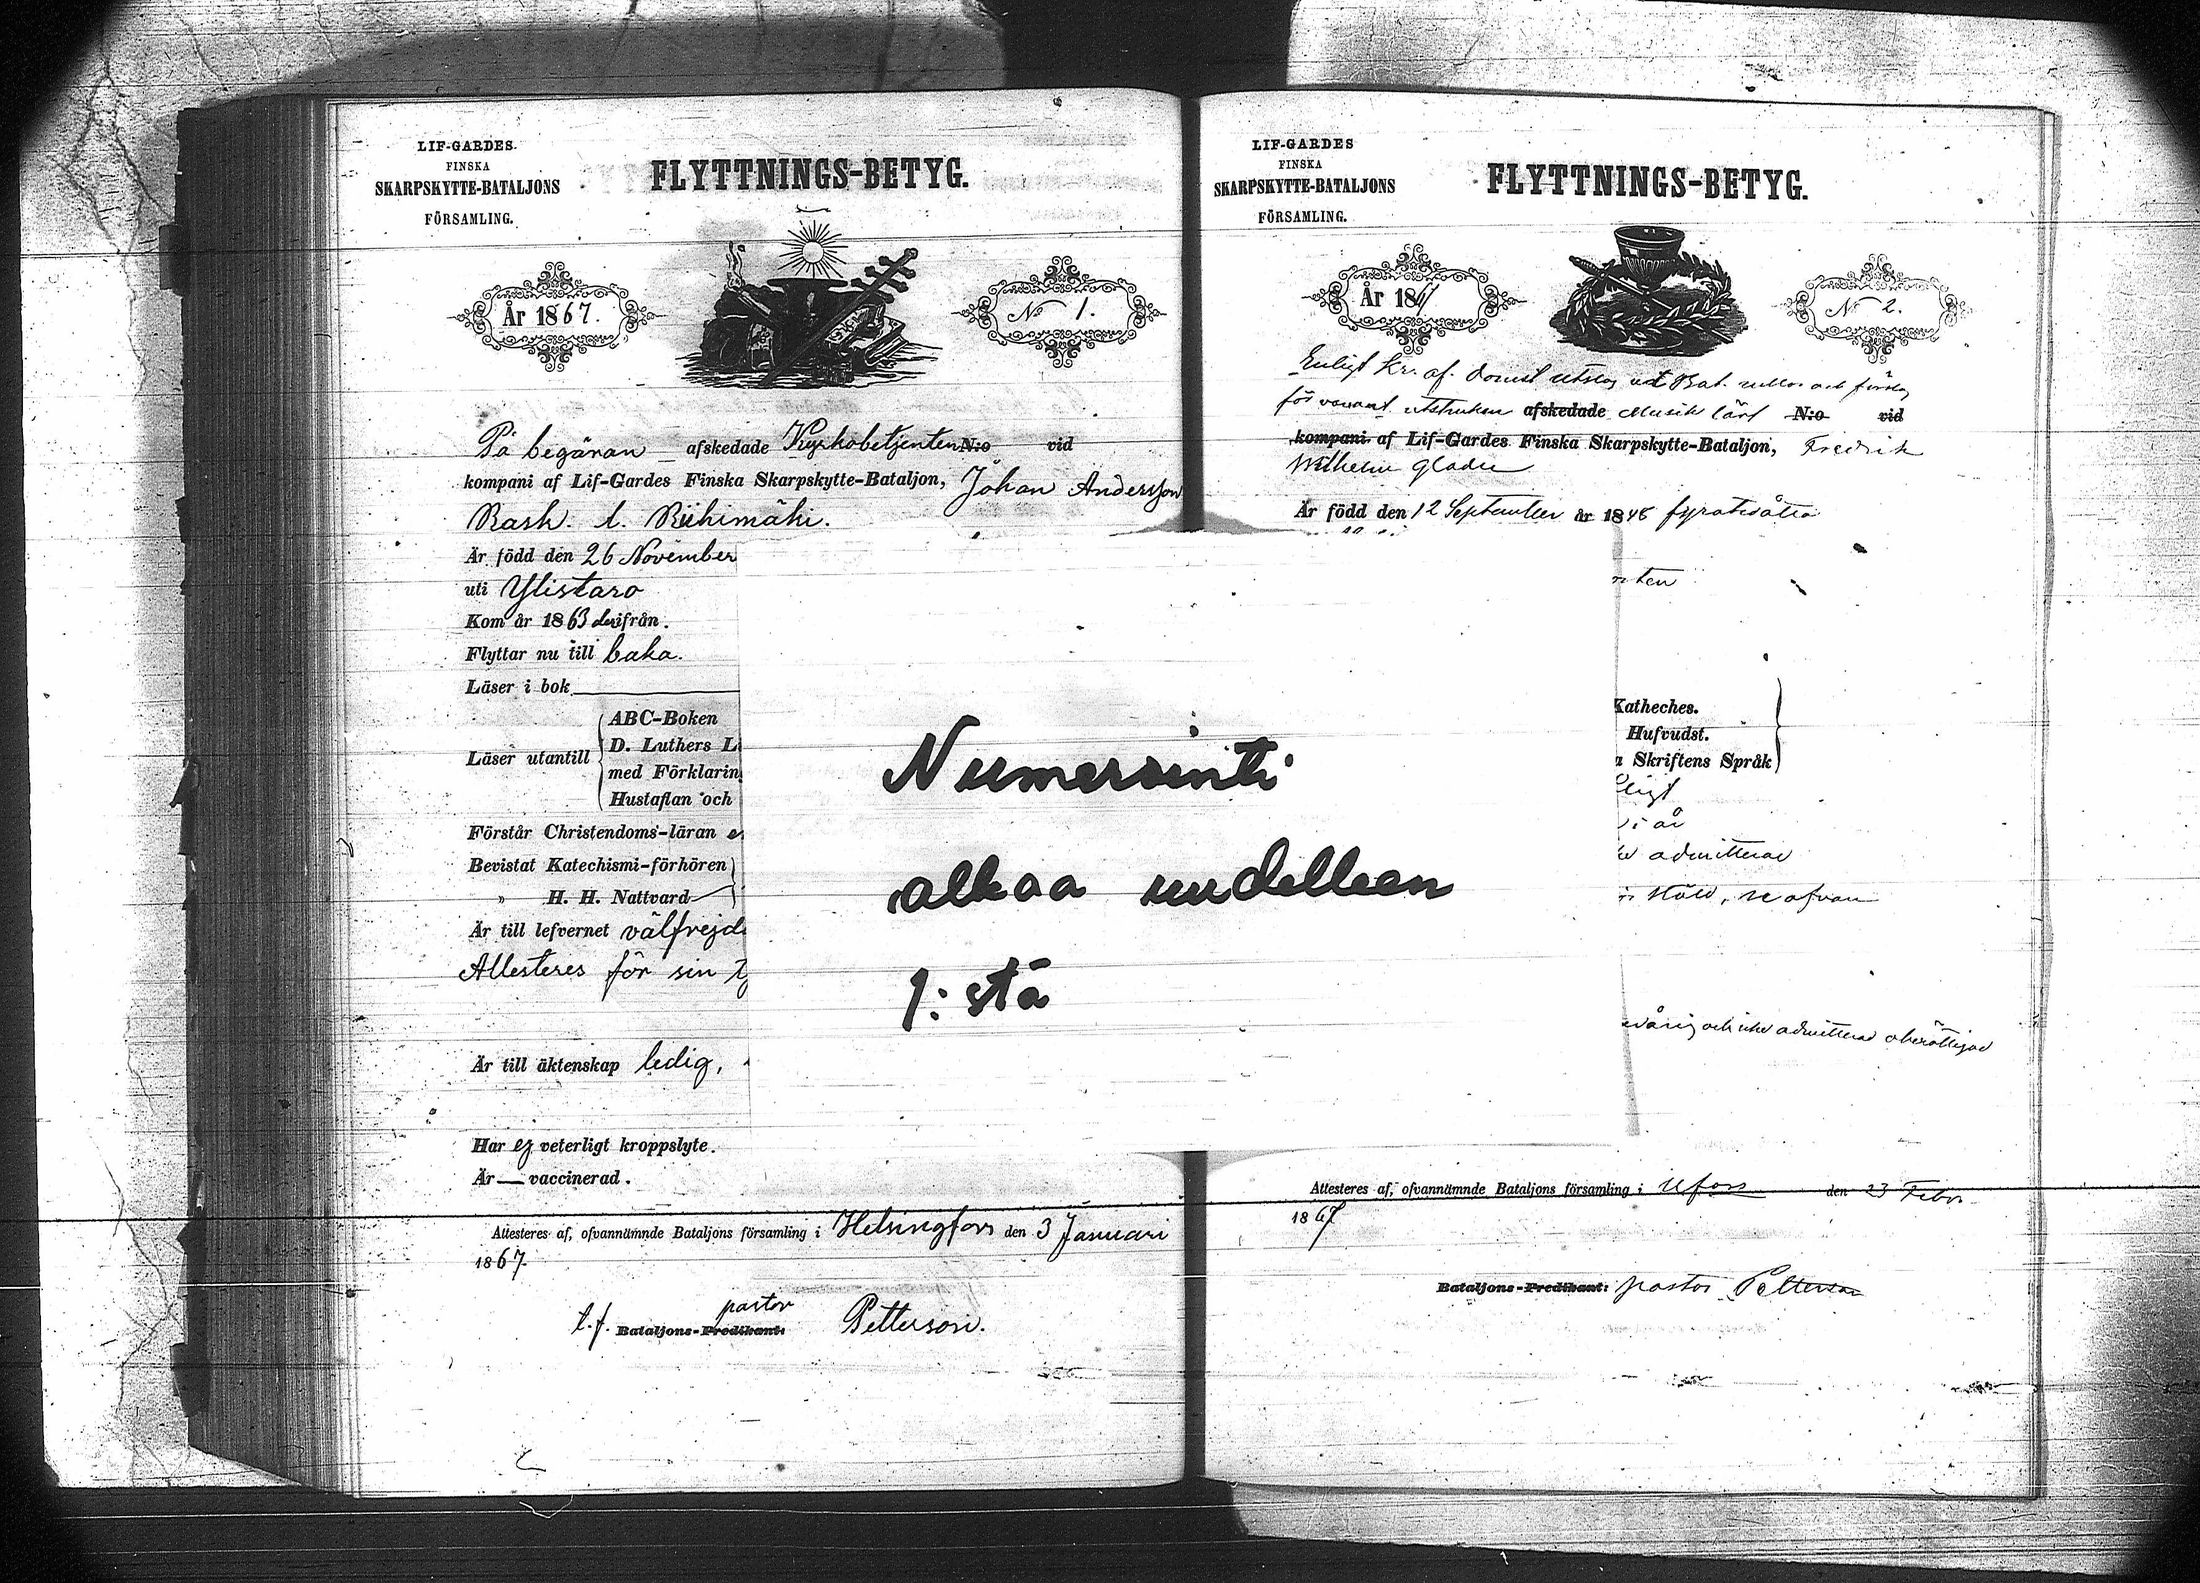 LIF-GARDES
FINSKA
SKARPSKYTTE-BATALJONS
FÖRSAMLING.
FLYTTNINGS-BETYG.
År 1867.
No 1.
På begäran afskedade Kyrkobetjenten N:o vid
kompani af Lif-Gardes Finska Skarpskytte-Bataljon, Johan Andersson
Rask. l. Riihimäki.
Är född den 26 November
uti Ylistaro
Kom år 1863 derifrån.
Flyttar nu till baka.
Läser i bok
Läser utantill
ABC-Boken
D. Luthers L
med Förklarin
Hustaflan och
Förstår Christendoms-läran
Bevistat Katechismi-förhören
" H. H. Nattvard
Är till lefvernet välfrejd
Attesteres för sin
Är till äktenskap ledig,
Har ej veterligt kroppslyte.
Är — vaccinerad.
Attesteres af, ofvannämnde Bataljons församling i Helsingfors den 3 Januari
1867.
t.f. Bataljons-Predikant: pastor Petterson.
Numerointi
alkaa uudelleen
1:stä
LIF-GARDES
FINSKA
SKARPSKYTTE-BATALJONS
FÖRSAMLING.
FLYTTNINGS-BETYG.
År 1867
No 2.
Enligt Kr. af. domst utslag ut Bat. rullor och
för utstruken afskedade Musik lärl N:o vid
kompani af Lif-Gardes Finska Skarpskytte-Bataljon, Fredrik
Wilhelm
Är född den 12 September år 1848 fyratioåtta
ten
Katheches.
Hufvudst.
a Skriftens Språk
ligt
i år
admitterad
stöld, se ofvan
och icke admitterad
Attesteres af, ofvannämnde Bataljons församling i Hfors den 23 Febr
1867
Bataljons-Predikant: pastor Petterson